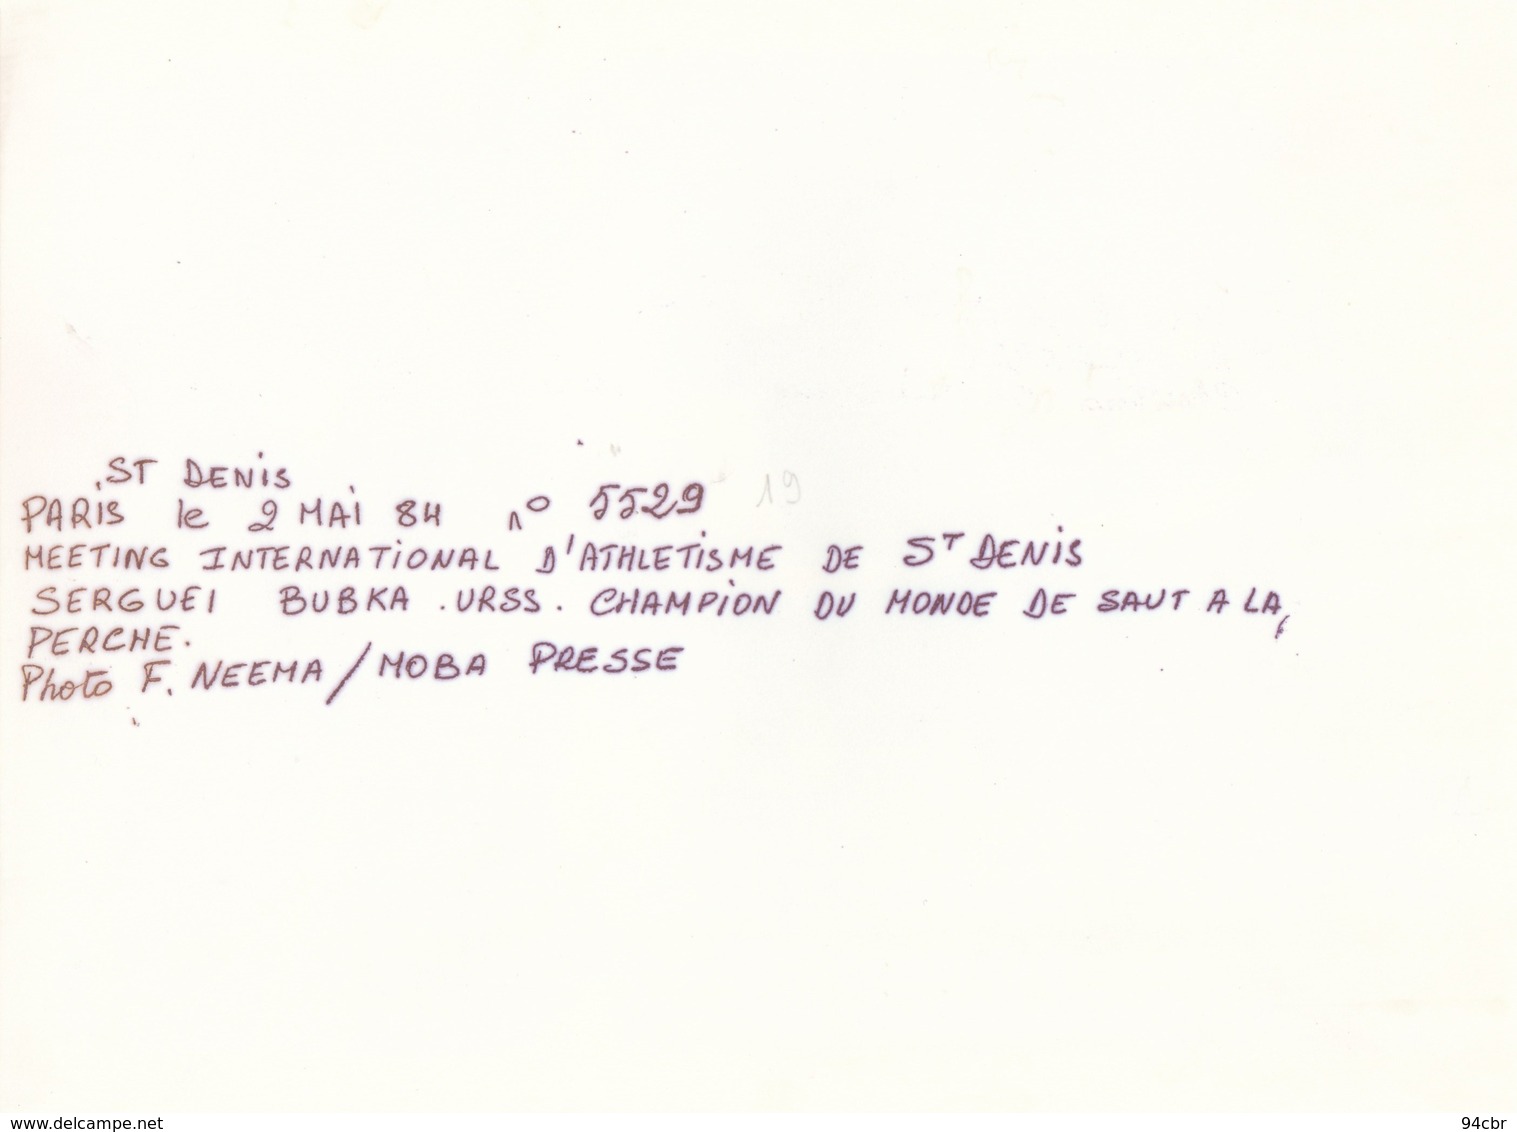 ST DENIS
PARIS le 2 MAI 84 n° 5529 19
MEETING INTERNATIONAL D'ATHLETISME DE ST DENIS
SERGUEI BUBKA . URSS . CHAMPION DU MONDE DE SAUT A LA
PERCHE.
Photo F. NEEMA / MOBA PRESSE
www.delcampe.net
94cbr